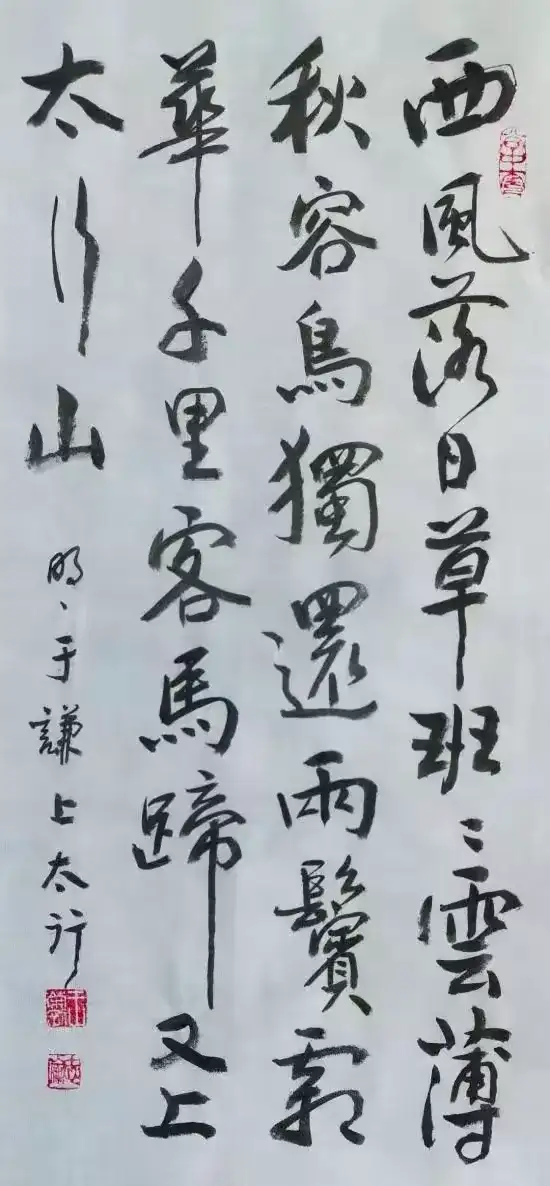 西風落日草班〻雲薄
秋容鳥獨還兩鬢霜
華千里客馬蹄又上
太行山
明、于謙上太行